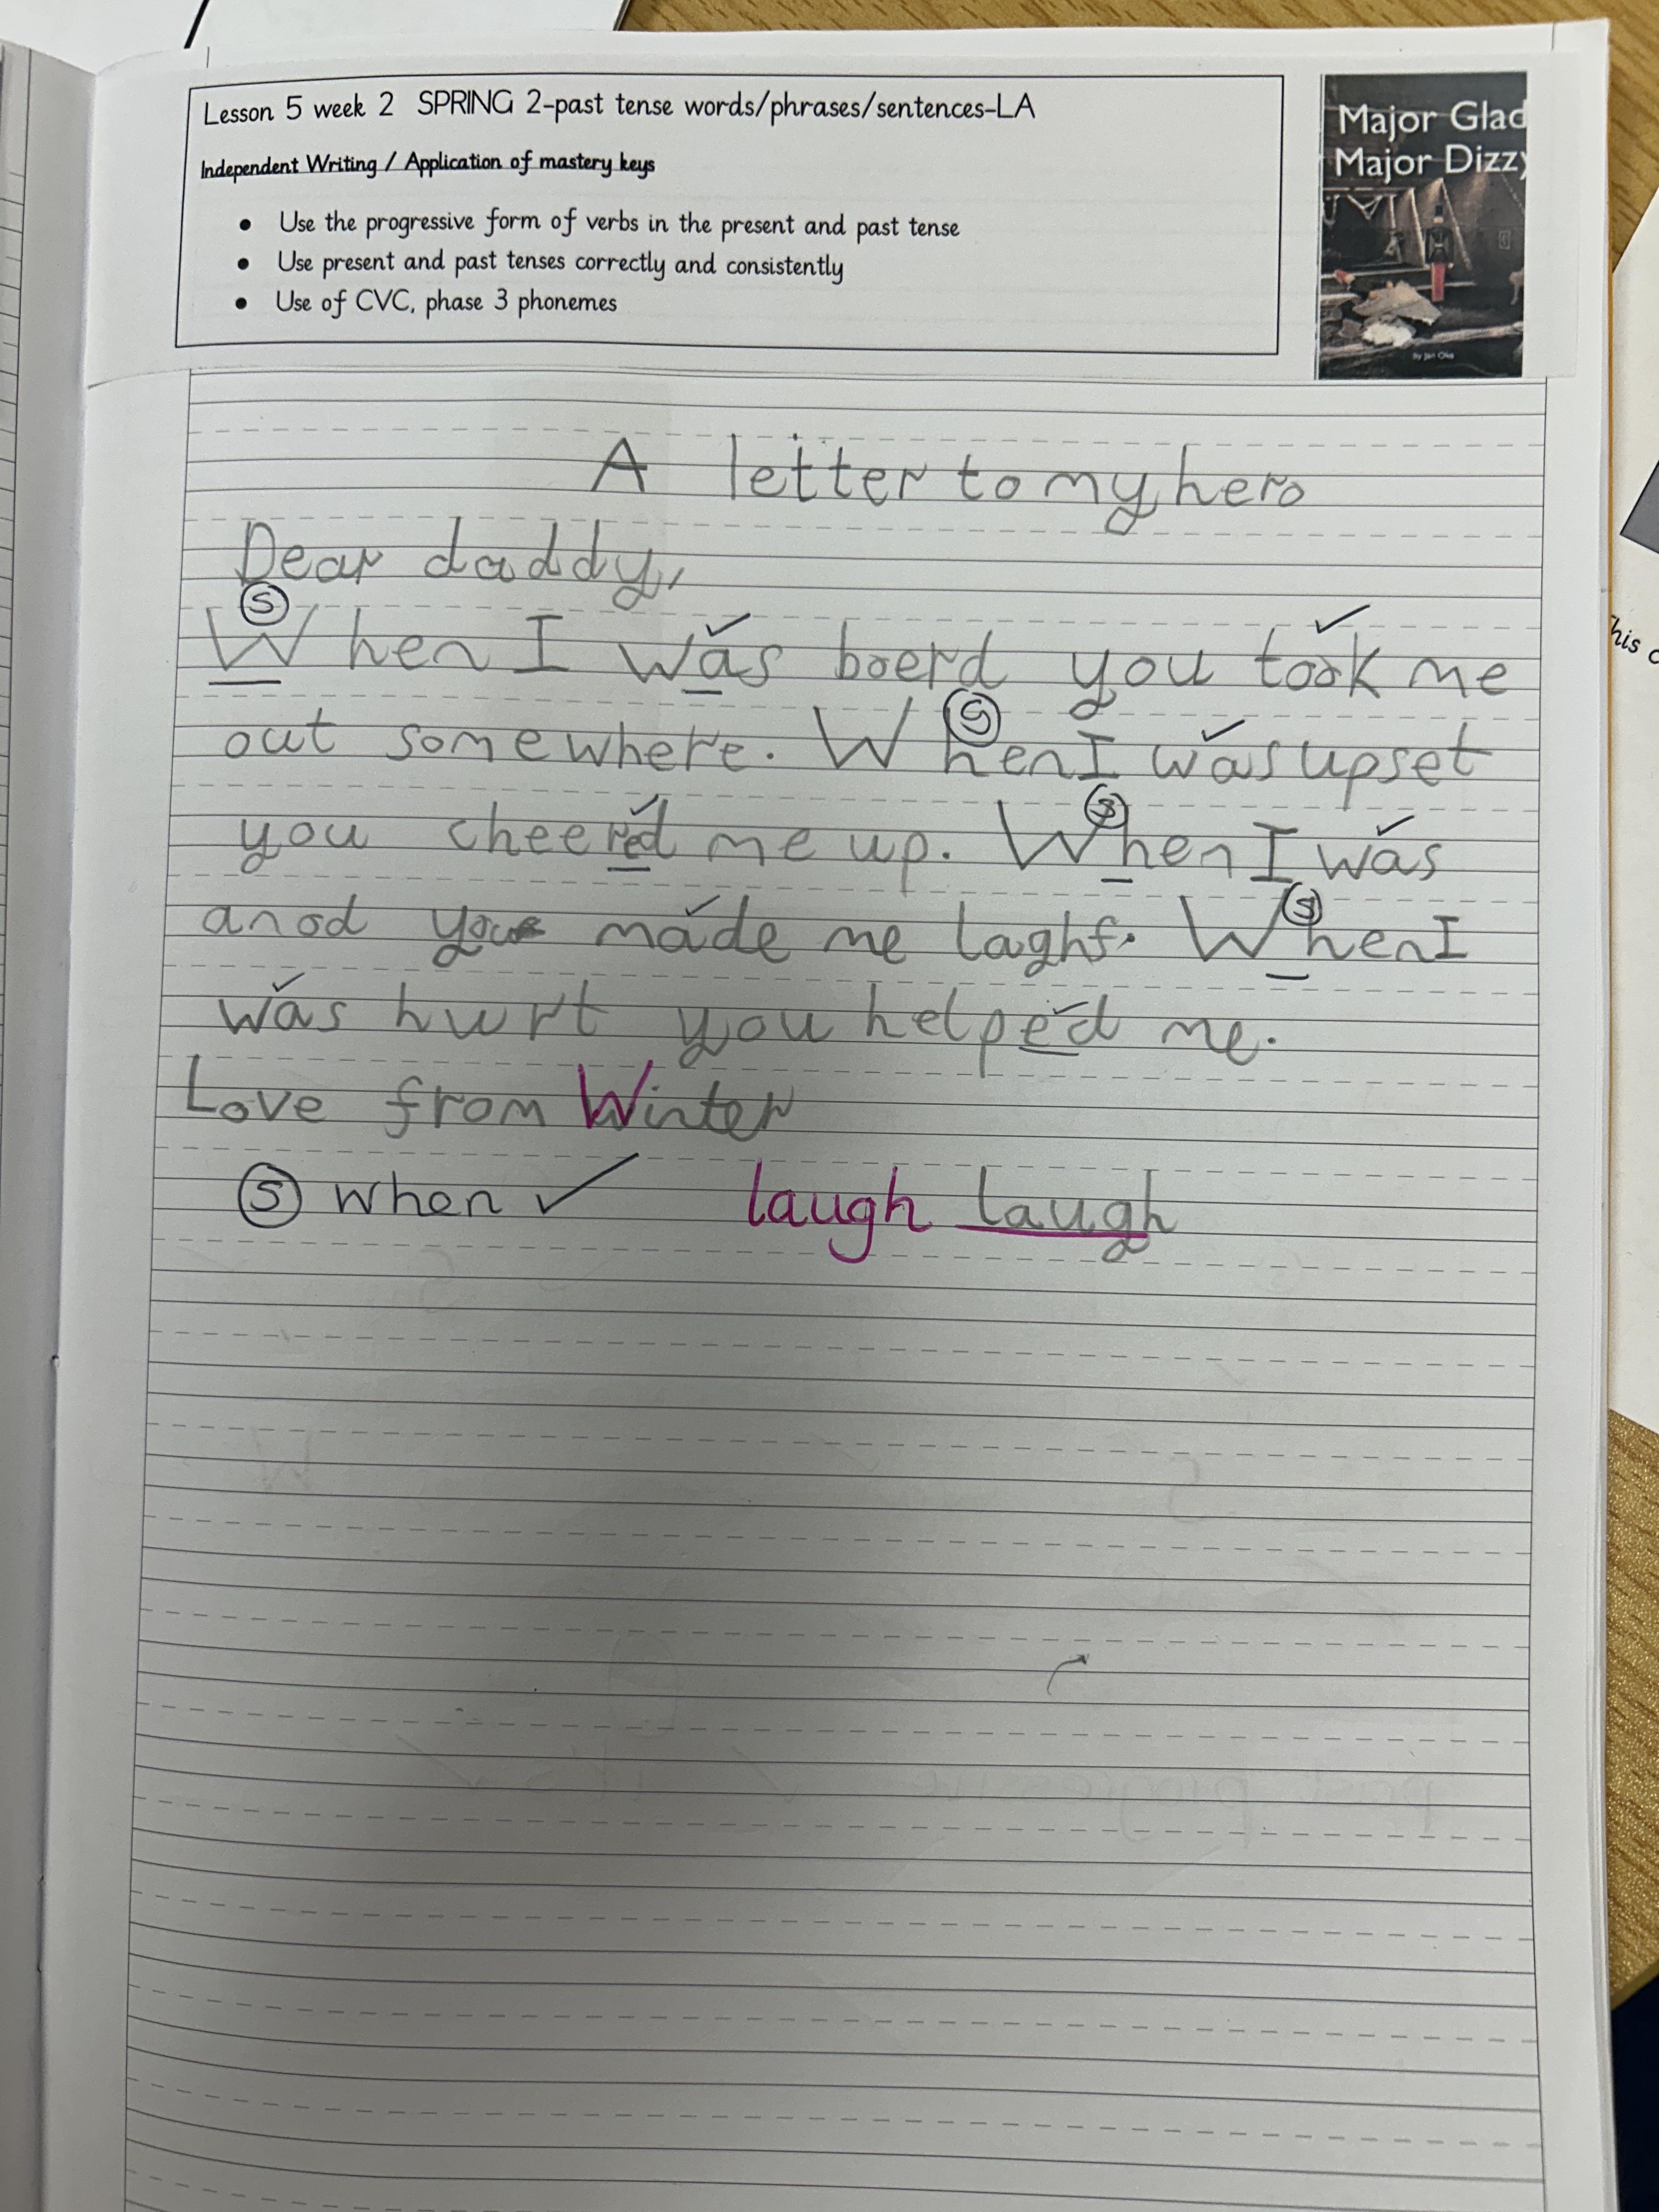 Lesson 5 week 2 SPRING 2-past tense words/phrases/sentences-LA
Independent Writing / Application of mastery keys
• Use the progressive form of verbs in the present and past tense
• Use present and past tenses correctly and consistently
• Use of CVC, phase 3 phonemes
Major Glad
Major Dizzy
By Jan Oke
A letter to my hero
Dear daddy,
When I was boerd you took me
out somewhere. When I was upset
you cheered me up. When I was
anod you made me laghf. When I
was hurt you helped me.
Love from Winter
S when ✓ laugh laugh
his